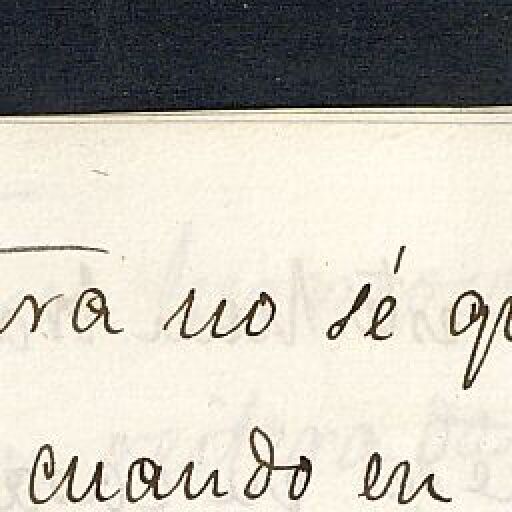 no sé
cuando en